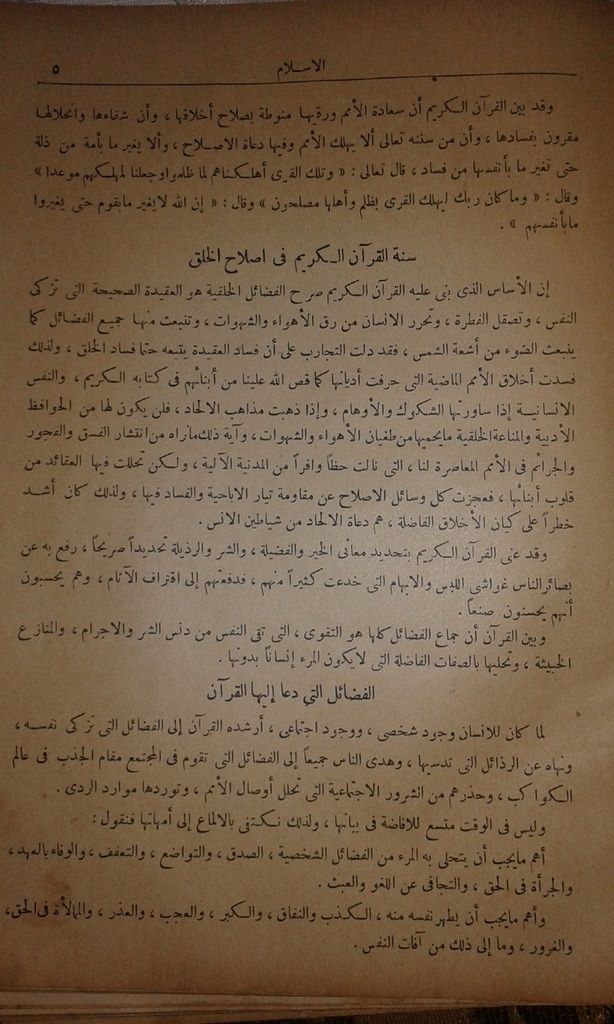 الاسلام
٥
وقد بين القرآن الكريم أن سعادة الأمم ورقيها منوطة بصلاح أخلاقها ، وأن شقاءها وانحلالها
مقرون بفسادها ، وأن من سننه تعالى ألا يهلك الأمم وفيها دعاة الاصلاح ، وألا يغير ما بأمة من ذلة
حتى تغير ما بأنفسها من فساد ، قال تعالى : « وتلك القرى أهلكناهم لما ظلموا وجعلنا لمهلكهم موعدا »
وقال : « وما كان ربك ليهلك القرى بظلم وأهلها مصلحون » وقال : « إن الله لا يغير ما بقوم حتى يغيروا
ما بأنفسهم » .
سنة القرآن الكريم فى اصلاح الخلق
إن الأساس الذى بنى عليه القرآن الكريم صرح الفضائل الخلقية هو العقيدة الصحيحة التى تزكى
النفس ، وتصقل الفطرة ، وتحرر الانسان من رق الأهواء والشهوات ، وتنبعث منها جميع الفضائل كما
ينبعث الضوء من أشعة الشمس ، فقد دلت التجارب على أن فساد العقيدة يتبعه حتما فساد الخلق ، ولذلك
فسدت أخلاق الأمم الماضية التى حرفت أديانها كما قص الله علينا من أبنائهم فى كتابه الكريم ، والنفس
الانسانية إذا ساورتها الشكوك والأوهام ، وإذا ذهبت مذاهب الالحاد ، فلن يكون لها من الحوافظ
الأدبية والمناعة الخلقية ما يحميها من طغيان الأهواء والشهوات ، وآية ذلك ما نراه من انتشار الفسق والفجور
والجرائم فى الأمم المعاصرة لنا ، التى نالت حظاً وافراً من المدنية الآلية ، ولكن تحللت فيها العقائد من
قلوب أبنائها ، فعجزت كل وسائل الاصلاح عن مقاومة تيار الاباحية والفساد فيها ، ولذلك كان أشد
خطراً على كيان الأخلاق الفاضلة ، هم دعاة الالحاد من شياطين الانس .
وقد عنى القرآن الكريم بتحديد معانى الخير والفضيلة ، والشر والرذيلة تحديداً صريحاً ، رفع به عن
بصائر الناس غواشى اللبس والابهام التى خدعت كثيراً منهم ، فدفعتهم إلى اقتراف الآثام ، وهم يحسبون
أنهم يحسنون صنعاً .
وبين القرآن أن جماع الفضائل كلها هو التقوى ، التى تقى النفس من دنس الشر والاجرام ، والمنازع
الخبيثة ، وتحليها بالصفات الفاضلة التى لا يكون المرء إنساناً بدونها .
الفضائل التى دعا إليها القرآن
لما كان للانسان وجود شخصى ، ووجود اجتماعى ، أرشده القرآن إلى الفضائل التى تزكى نفسه ،
ونهاه عن الرذائل التى تدسيها ، وهدى الناس جميعاً إلى الفضائل التى تقوم فى المجتمع مقام الجذب فى عالم
الكواكب ، وحذرهم من الشرور الاجتماعية التى تحلل أوصال الأمم ، وتوردها موارد الردى .
وليس فى الوقت متسع للافاضة فى بيانها ، ولذلك نكتفى بالالماع إلى أمهاتها فنقول :
أهم ما يجب أن يتحلى به المرء من الفضائل الشخصية ، الصدق ، والتواضع ، والتعفف ، والوفاء بالعهد ،
والجرأة فى الحق ، والتجافى عن اللغو والعبث .
وأهم ما يجب أن يطهر نفسه منه ، الكذب والنفاق ، والكبر ، والعجب ، والغدر ، والممالأة فى الحق ،
والغرور ، وما إلى ذلك من آفات النفس .